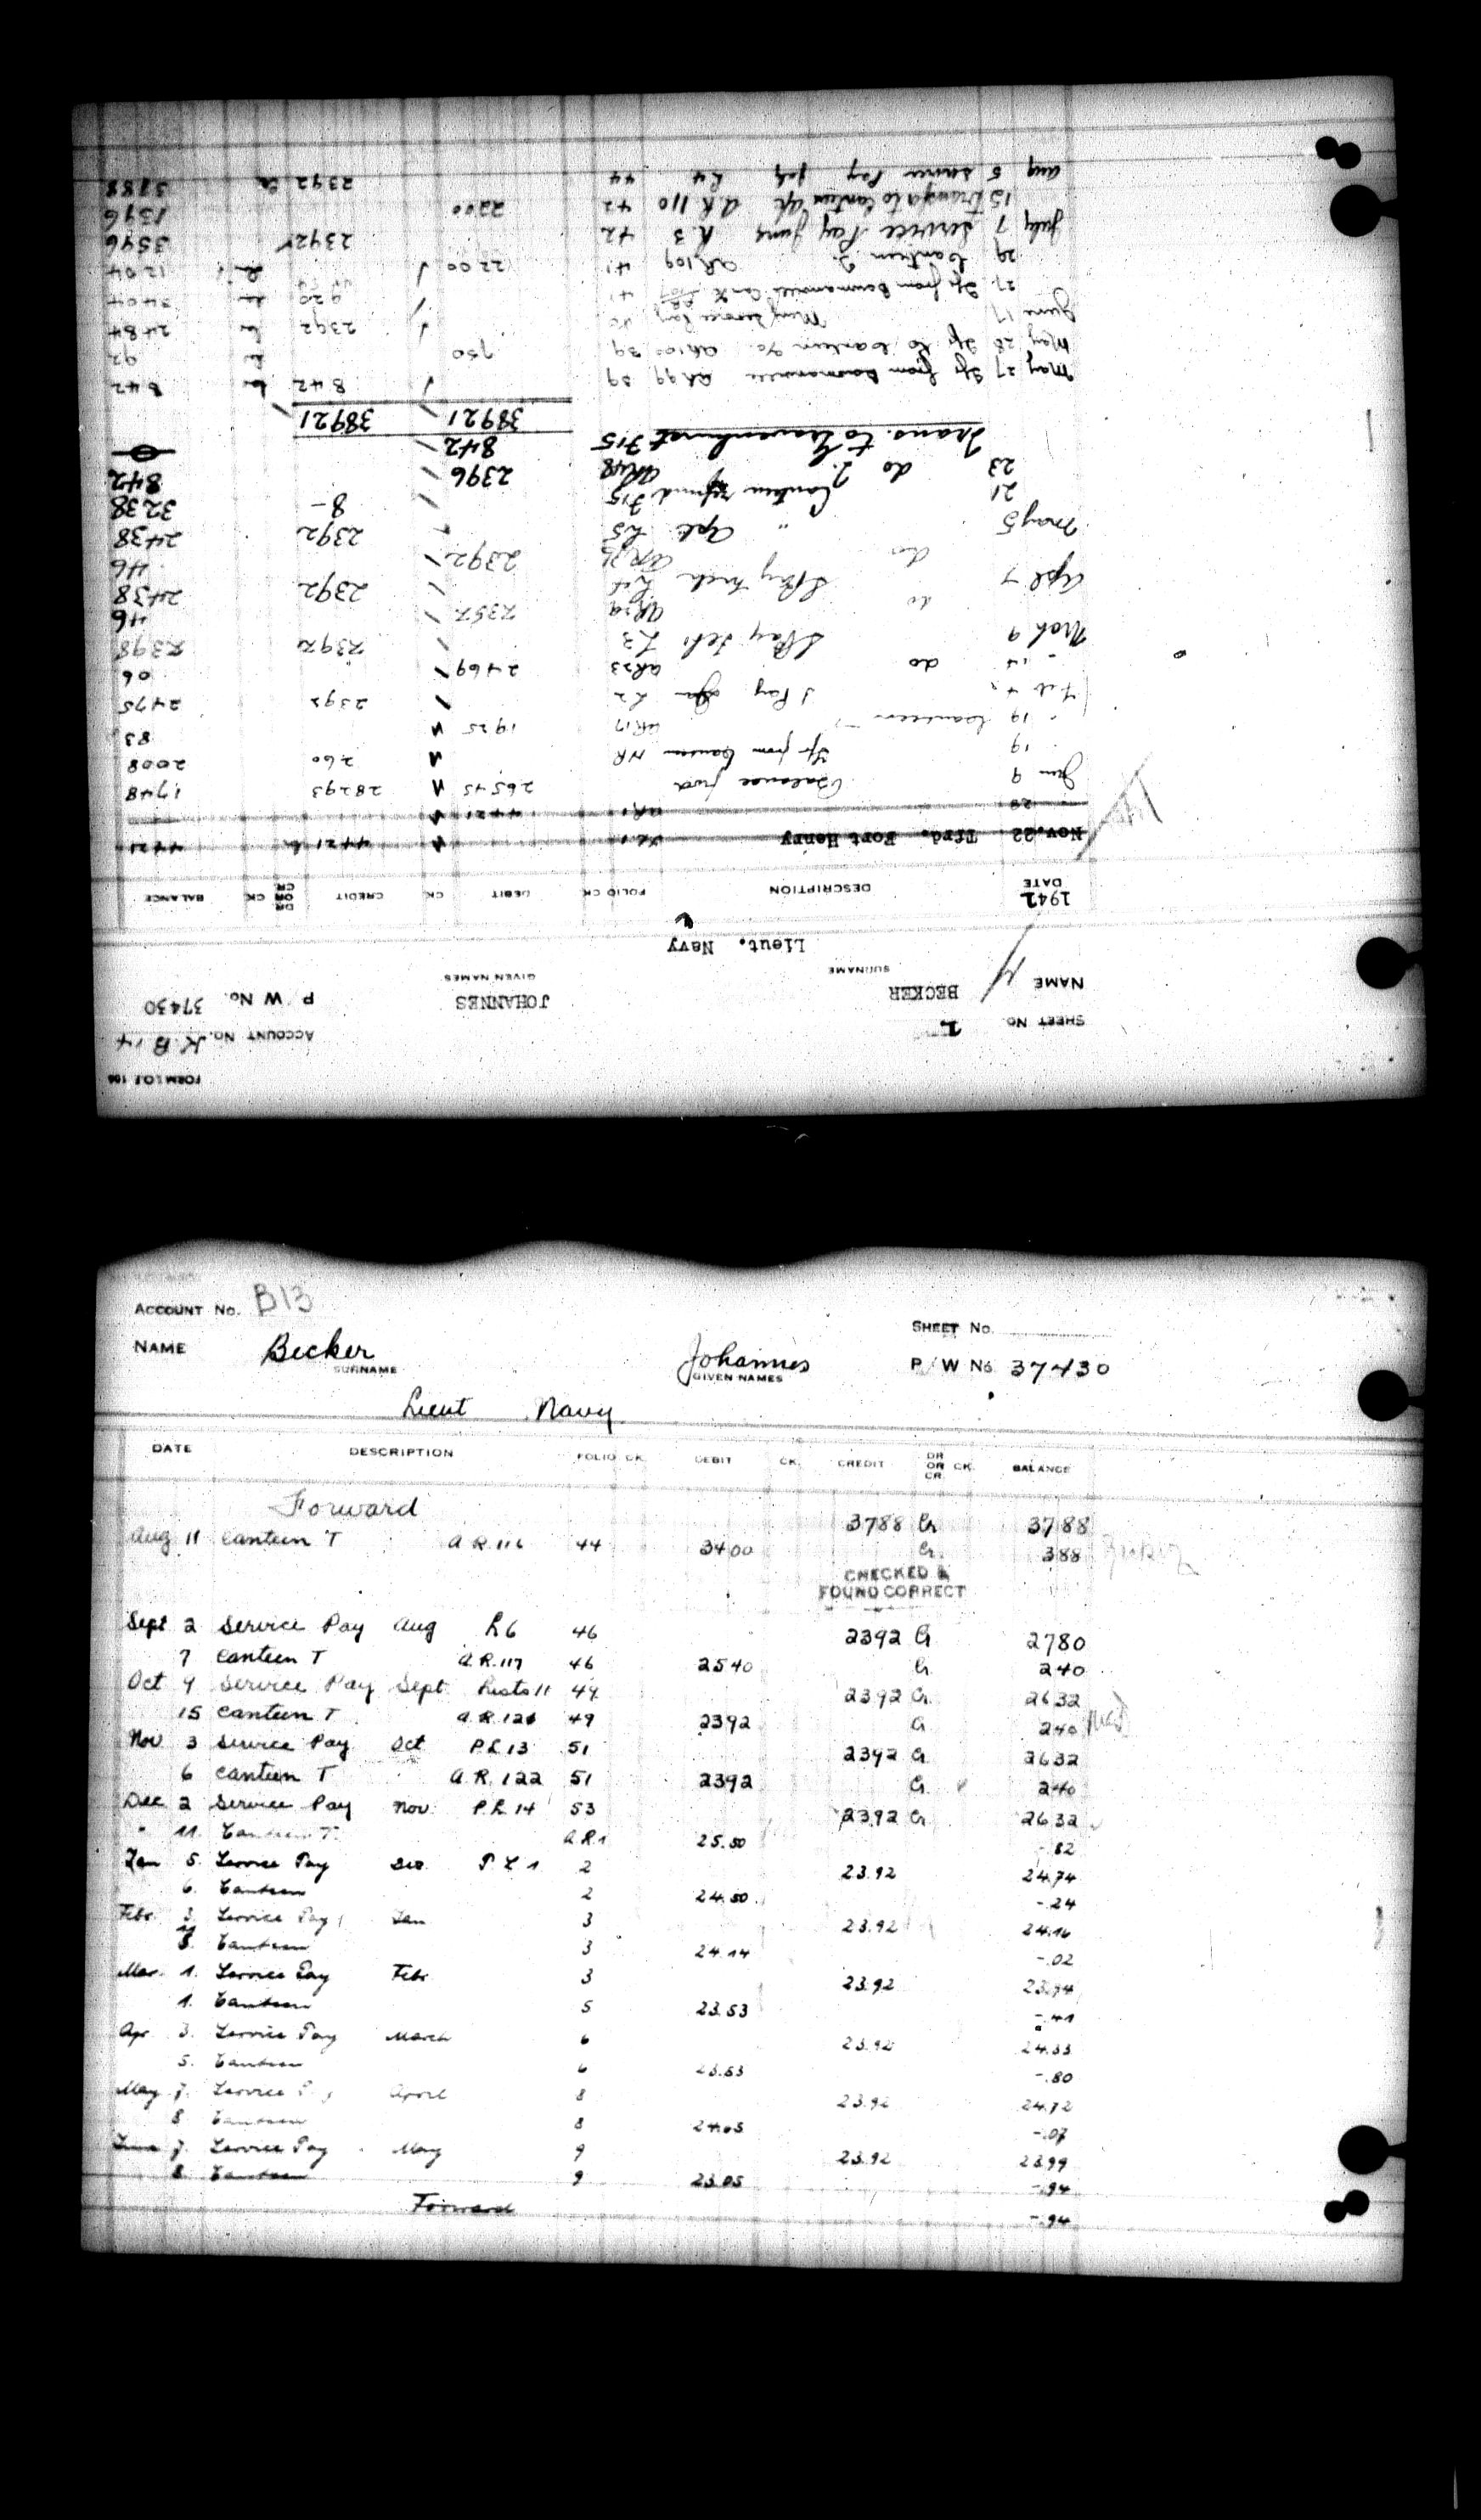 FORM I.O.F. 106
ACCOUNT No. K B 14
SHEET No. 2
P / W No. 37430
NAME BECKER JOHANNES
SURNAME GIVEN NAMES
Lieut. Navy
1942
DATE DESCRIPTION FOLIO CK DEBIT CK. CREDIT DR OR CR CK. BALANCE
Nov. 22. Tfrd. Fort Henry 4421 4421
28 AR1 4421
Jan 9 Balance fwd 26545 28293 1748
19 Tfr from Canteen NR 260 2008
19 Canteen T AR17 1925 83
Feb 4 S Pay Jan L2 2392 2475
14 do AR23 2469 06
Mch 9 S Pay Feb L3 2392 2398
do AR29 2352 46
Apl 7 S Pay Mch L4 2392 2438
do 2392 46
May 5 " Apl L5 2392 2438
21 Canteen refund F15 8- 3238
23 do T. AR48 2396 842
Trans. to Gravenhurst F15 842
38921 38921
May 27 Tfr from Bowmanville AR 99 39 842 Cr 842
May 28 Tfr to Canteen AR100 39 750 Cr 92
June 17 May Service Pay 40 2392 Cr 2484
27 Tfr from Bowmanville Cant 41 920 Cr 3404
29 Canteen T. AR109 41 2200 Cr 1204
July 7 Service Pay June R 3 42 2392 3596
15 Transfer to Canteen AR 110 42 2200 1396
Aug 5 Service Pay July R4 44 2392 Cr 3788
ACCOUNT No. B13
SHEET No.
NAME Becker Johannes P / W No. 37430
SURNAME GIVEN NAMES
Lieut Navy
DATE DESCRIPTION FOLIO CK. DEBIT CK. CREDIT DR OR CR. CK. BALANCE
Forward 3788 Cr 3788
Aug 11 Canteen T A.R.116 44 3400 Cr. 388
CHECKED &
FOUND CORRECT
Sept 2 Service Pay Aug R6 46 2392 Cr 2780
7 Canteen T A.R.117 46 2540 Cr 240
Oct 4 Service Pay Sept Lists 11 49 2392 Cr 2632
15 Canteen T A.R.121 49 2392 Cr 240
Nov 3 Service Pay Oct P.L 13 51 2392 Cr 2632
6 Canteen T A.R. 122 51 2392 Cr 240
Dec 2 Service Pay Nov. P.L 14 53 2392 Cr 2632
" 11. Canteen T. A.R1 25.50 -.82
Jan 5. Service Pay Dec. P. L 1 2 23.92 24.74
6. Canteen 2 24.50 -.24
Febr. 3. Service Pay Jan 3 23.92 24.16
Canteen 3 24.14 -.02
Mar. 1. Service Pay Febr. 3 23.92 23.94
1. Canteen 5 23.53 -.41
Apr 3. Service Pay March 6 23.92 24.33
5. Canteen 6 23.53 -.80
May 7. Service Pay April 8 23.92 24.72
8. Canteen 8 24.65 -.07
June 7. Service Pay May 9 23.92 23.99
8. Canteen 9 23.05 -.94
Forward -.94